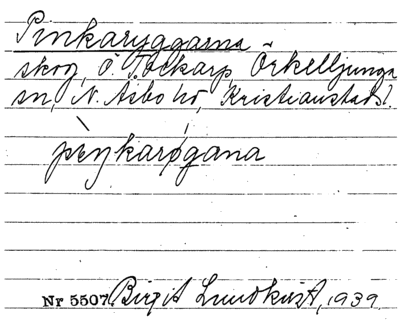 Pinkaryggarna
skog, Ö. Tockarp, Örkelljunga
sn, N. Åsbo hd, Kristianstads l.
pìŋkarøgana
Nr 5507 Birgit Lundkvist, 1939